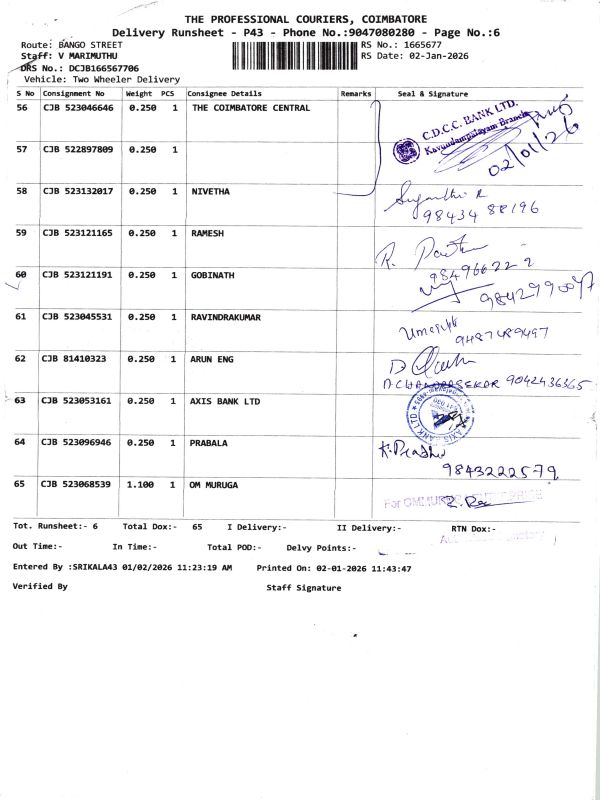 THE PROFESSIONAL COURIERS, COIMBATORE
Delivery Runsheet - P43 - Phone No.:9047080280 - Page No.:6
Route: BANGO STREET
RS No.: 1665677
Staff: V MARIMUTHU
RS Date: 02-Jan-2026
DRS No.: DCJB166567706
Vehicle: Two Wheeler Delivery
S No Consignment No Weight PCS Consignee Details Remarks Seal & Signature
56 CJB 523046646 0.250 1 THE COIMBATORE CENTRAL
C.D.C.C. BANK LTD.
Kavundampalayam Branch
02/01/26
57 CJB 522897809 0.250 1
58 CJB 523132017 0.250 1 NIVETHA
98434 88196
59 CJB 523121165 0.250 1 RAMESH
R.
60 CJB 523121191 0.250 1 GOBINATH
61 CJB 523045531 0.250 1 RAVINDRAKUMAR
9487489497
62 CJB 81410323 0.250 1 ARUN ENG
D.CHANDRASEKAR 9042436365
63 CJB 523053161 0.250 1 AXIS BANK LTD
AXIS BANK LTD
64 CJB 523096946 0.250 1 PRABALA
9843222579
65 CJB 523068539 1.100 1 OM MURUGA
Tot. Runsheet:- 6 Total Dox:- 65 I Delivery:- II Delivery:- RTN Dox:-
Out Time:- In Time:- Total POD:- Delvy Points:-
Entered By :SRIKALA43 01/02/2026 11:23:19 AM Printed On: 02-01-2026 11:43:47
Verified By Staff Signature